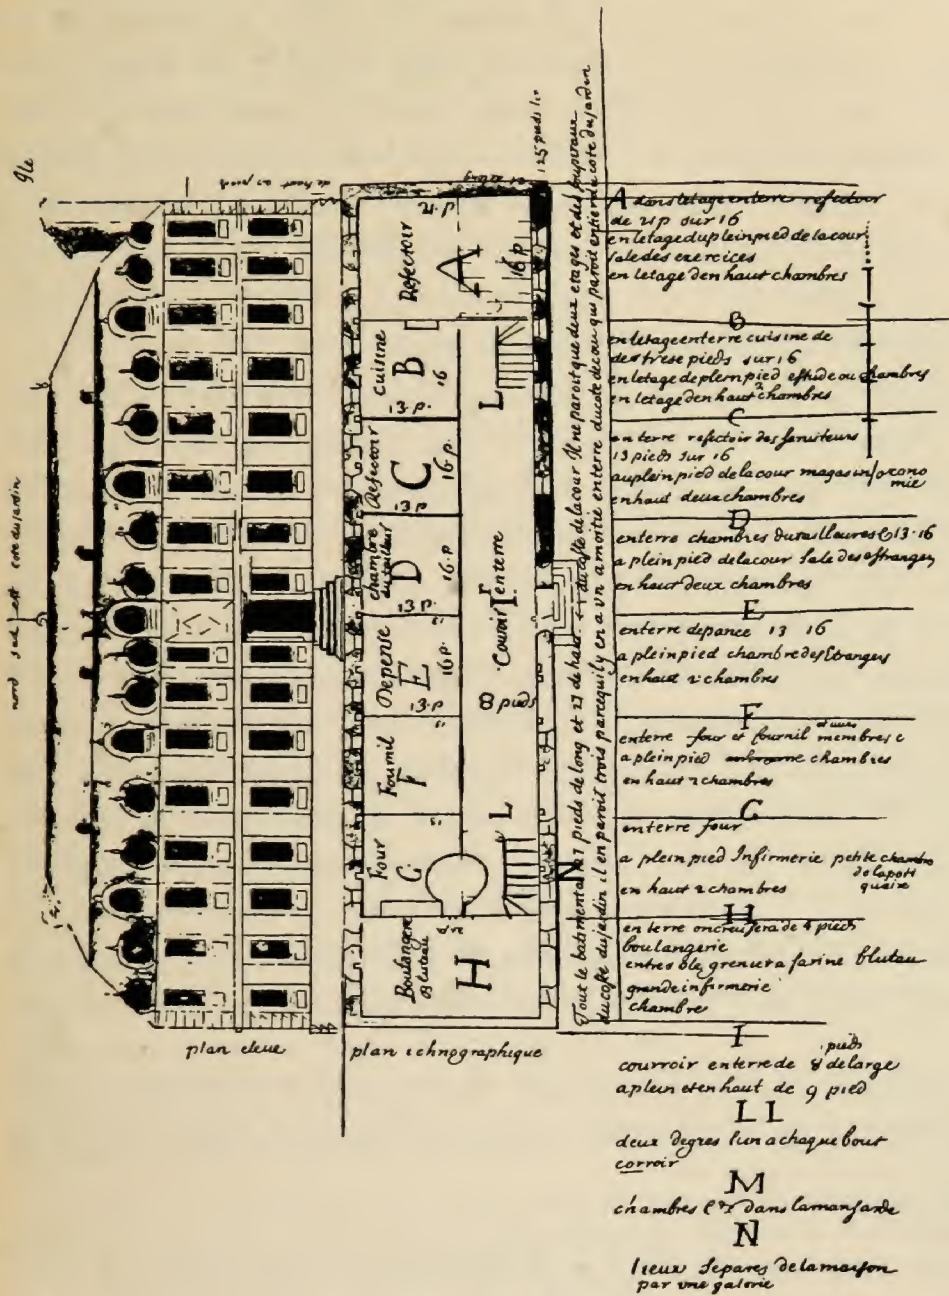 nord sud est cote du jardin
Refectoir
21. p
A
16 p.
cuisine
B
16
13. p.
Refectoir
C
16 p.
13 p
chambre
du tailleur
D
16. p
13 p.
Depense
E
16 p.
13. p
Fournil
F
Four
G
Boulangerie
Bluteau
H
Couroir enterre
I
8 pieds
L
L
N
125 pieds
Tout le batiment a 127 pieds de long et 27 de haut du coste de la cour Il ne paroit que deux etages et des soupiraux
du coste du jardin il en paroit trois parcequil y en a un a moitié enterre du cote de cour qui paroit entier du cote du jardin
plan eleue
plan ichnographique
A dans letage enterre refectoir
de 21 p sur 16
en letage du plein pied de la cour
sale des exercices
en letage den haut chambres
B
en letage enterre cuisine de
des trese pieds sur 16
en letage de plein pied estude ou chambres
en letage den haut 2 chambres
C
en terre refectoir des seruiteurs
13 pieds sur 16
au plein pied de la cour magasin/œcono
mie
en haut deux chambres
D
enterre chambres du tailleur 13. 16
a plein pied de la cour sale des estrangers
en haut deux chambres
E
en terre depance 13 16
a plein pied chambre des Etrangers
en haut 2 chambres
F
enterre four et fournil membres
a plein pied chambres
en haut 2 chambres
G
enterre four
a plein pied Infirmerie petite chambre
de lapoti
quaire
en haut 2 chambres
H
en terre on creusera de 4 pieds
boulangerie
grenier a farine bluteau
grande infirmerie
chambre
I
courroir enterre de 8 pieds de large
a plein et en haut de 9 pied
LL
deux degres lun a chaque bout
corroir
M
chambres dans la mansarde
N
lieux separes de la maison
par une galerie